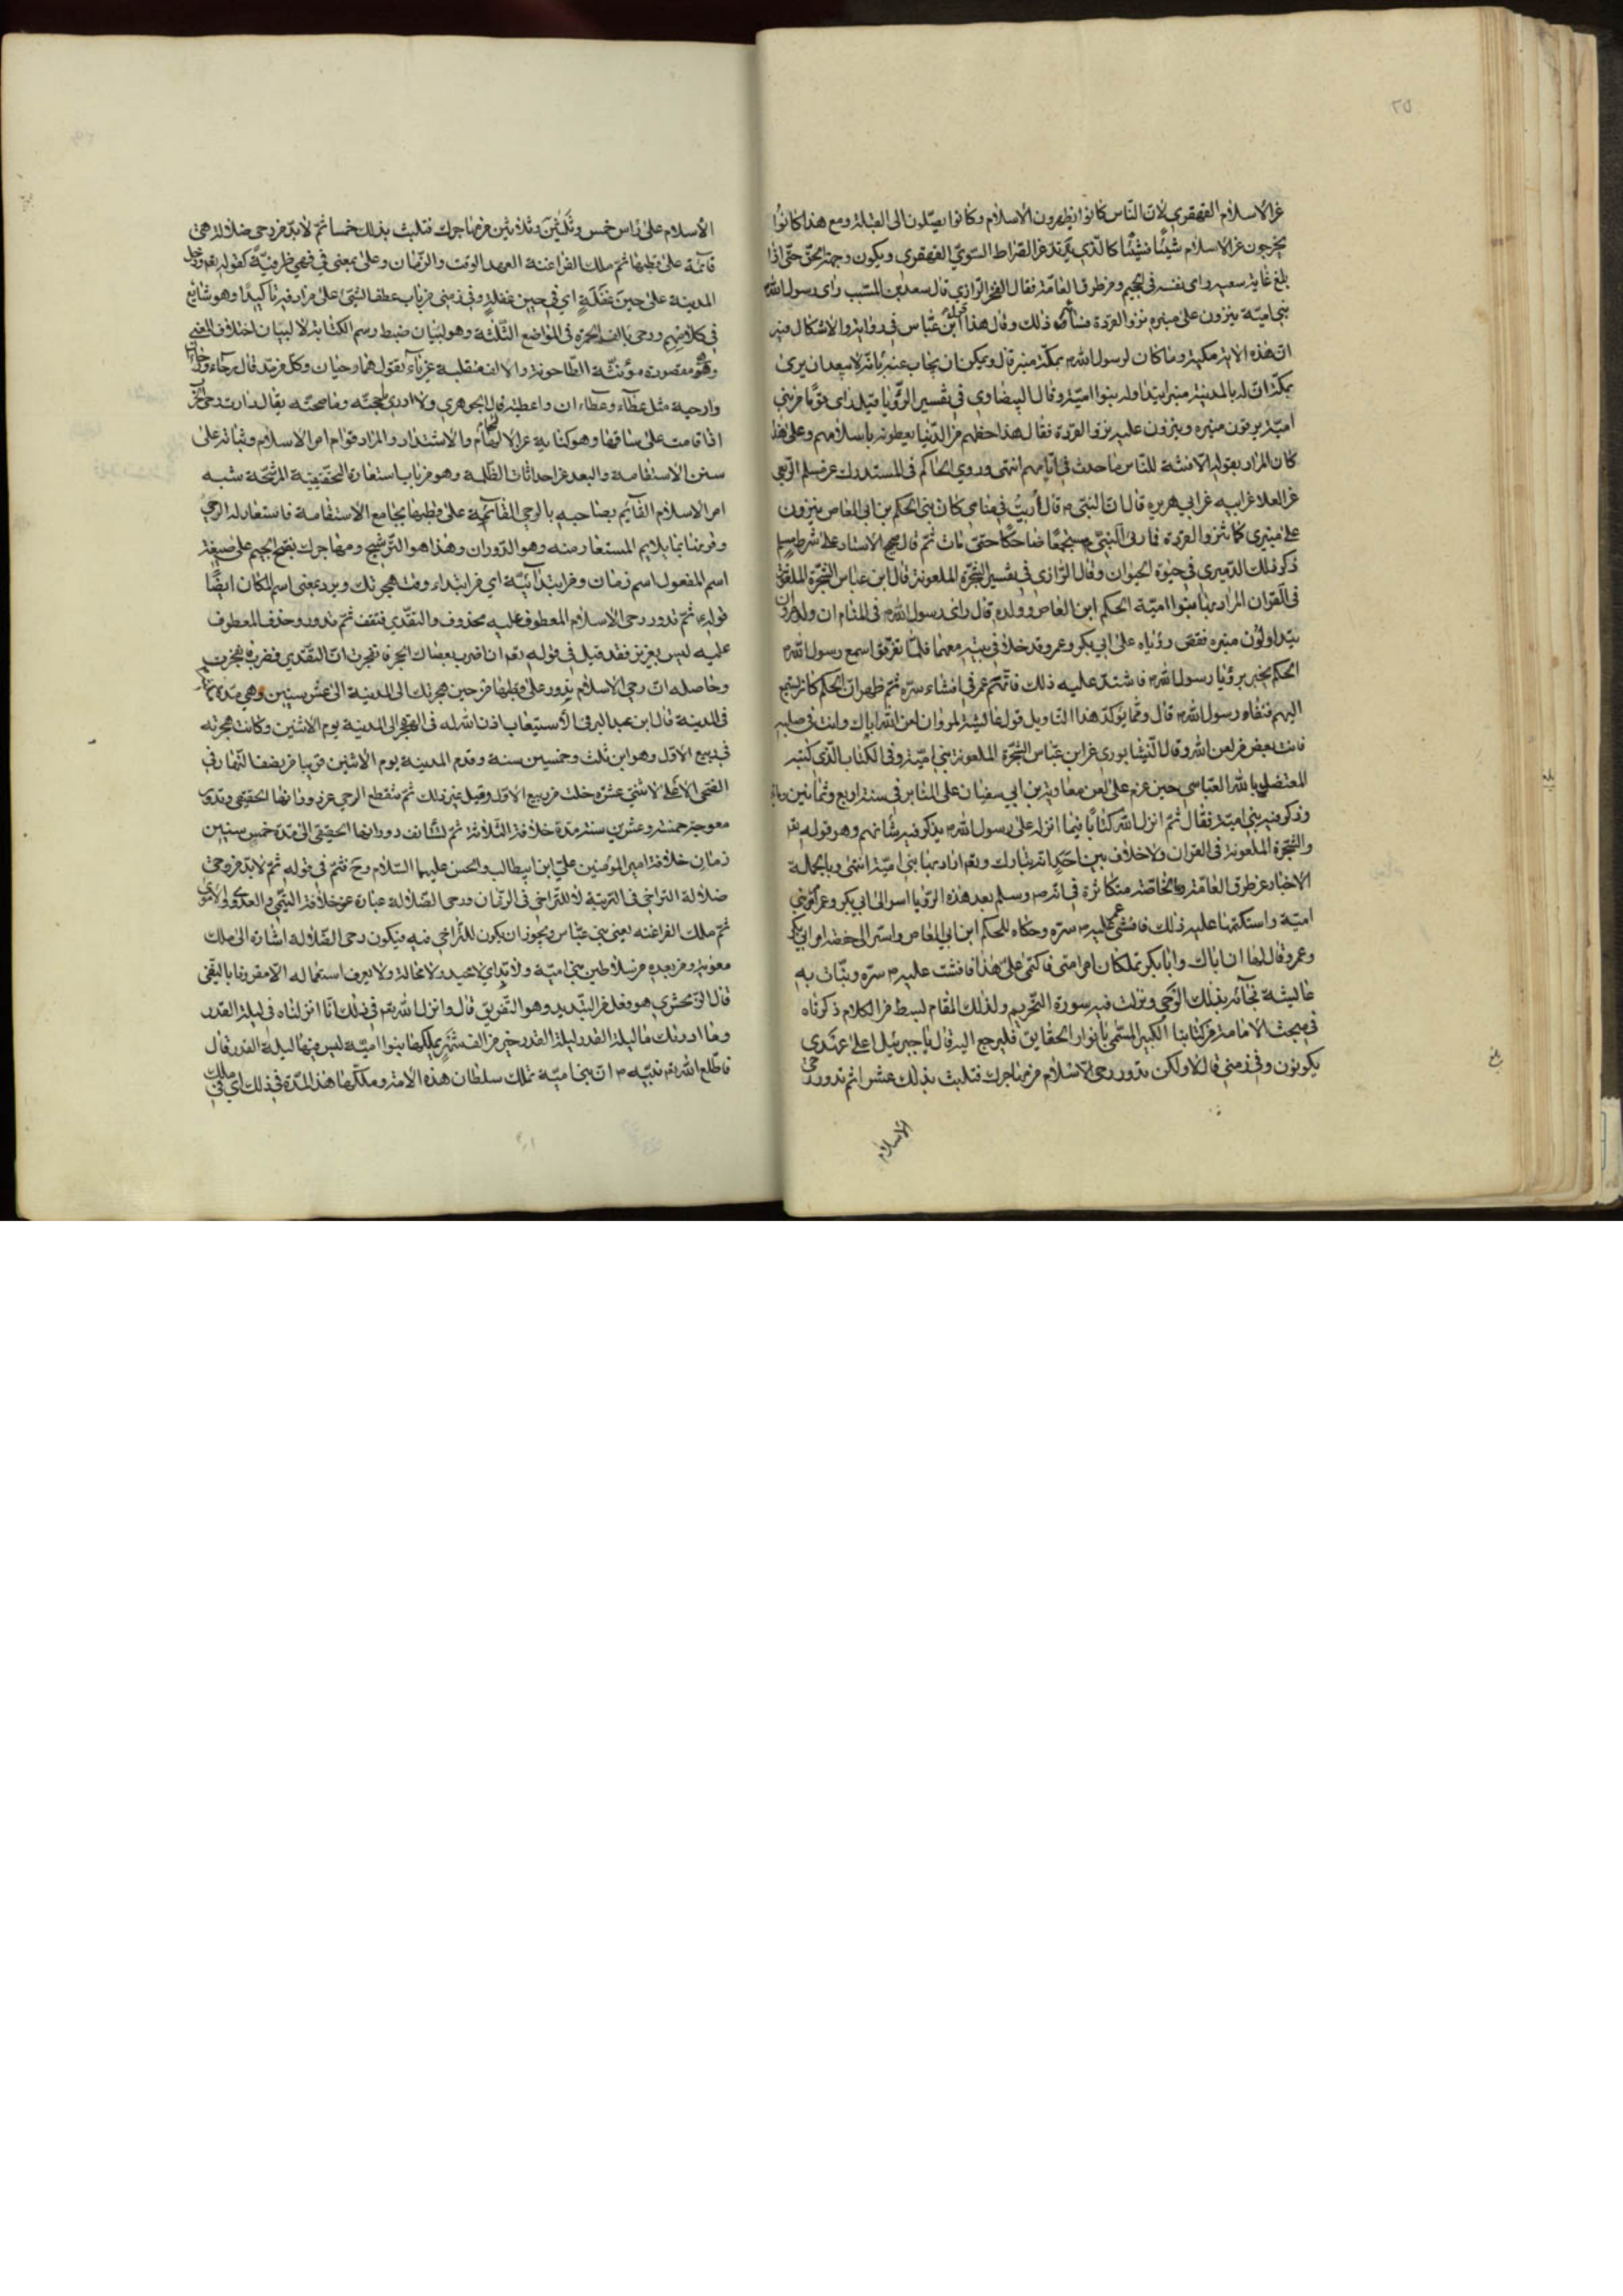 ٢٥
عن الاسلام القهقرى لان الناس كانوا يظهرون الاسلام وكانوا يصلون الى القبلة ومع هذا كانوا
يخرجون عن الاسلام شيئا فشيئا كالذي يرتد عن الصراط السوي القهقرى ويكون وجهه الى الحق حتى اذا
بلغ غاية سعيه راى نفسه في الجحيم ومن طرق العامة فقال الفخر الرازي قال سعيد بن المسيب راى رسول الله
بني امية ينزون على منبره نزو القردة فساءه ذلك وقال هذا قول ابن عباس في رواية والاشكال فيه
ان هذه الاية مكية وما كان لرسول الله بمكة منبر قال ويمكن ان يجاب عنه بانه لا يبعد ان يرى
بمكة ان له بالمدينة منبرا يتداوله بنوا امية وقال البيضاوي في تفسير الرؤيا قيل راى قوما من بني
امية يرقون منبره وينزون عليه نزو القردة فقال هذا حظهم من الدنيا يعطونه باسلامهم وعلى هذا
كان المراد بقوله الا فتنة للناس ما حدث في ايامهم انتهى وروى الحاكم في المستدرك عن مسلم الربعي
عن العلا عن ابيه عن ابي هريرة قال ان النبي قال اريت في منامي كان بني الحكم بن ابي العاص ينزون
على منبري كما تنزو القردة فما رئى النبي مستجمعا ضاحكا حتى مات ثم قال صحيح الاسناد على شرط مسلم
ذكر ذلك الدميري في حيوة الحيوان وقال الرازي في تفسير الشجرة الملعونة قال ابن عباس الشجرة الملعونة
في القران المراد بها بنوا امية الحكم ابن العاص وولده قال راى رسول الله في المنام ان ولد مروان
يتداولون منبره فقص رؤياه على ابي بكر وعمر وقد خلا في بيته معهما فلما تفرقوا سمع رسول الله
الحكم يخبر برؤيا رسول الله فاشتد عليه ذلك فاتهم عمر في افشاء سره ثم ظهر ان الحكم كان يستمع
اليهم فنفاه رسول الله قال ومما يؤكد هذا التاويل قول عايشة لمروان لعن الله اباك وانت في صلبه
فانت بعض من لعن الله وقال النيشابوري عن ابن عباس الشجرة الملعونة بني امية وفي الكتاب الذي كتبه
المعتضد بالله العباسي حين عزم على لعن معاوية بن ابي سفيان على المنابر في سنة اربع وثمانين
وذكر فيه بني امية فقال ثم انزل الله كتابا فيما انزله على رسول الله يذكر فيه شانهم وهو قوله تعالى
والشجرة الملعونة في القران ولا خلاف بين احد انه تبارك وتعالى اراد بها بني امية انتهى وبالجملة
الاخبار عن طرق العامة والخاصة متكاثرة في انه صلى وسلم بعد هذه الرؤيا اسر الى ابي بكر وعمر امر بني
امية واستكتمهما عليه ذلك فافشى عمر عليه سره وحكاه للحكم ابن ابي العاص واسر الى حفصة امر ابي بكر
وعمر وقال لها ان اباك وابا بكر يملكان امر امتي فاكتمي على هذا فافشت عليه سره ونبأت به
عايشة فجائه بذلك الوحي ونزلت فيه سورة التحريم ولذلك المقام لبسط من الكلام ذكرناه
في مبحث الامامة من كتابنا الكبير المسمى بانوار الحقايق فليرجع اليه قال يا جبرئيل اعلى عهدي
يكونون وفي زمني قال لا ولكن تدور رحى الاسلام من مهاجرك فتلبث بذلك عشرا ثم تدور رحى
الاسلام
الاسلام على راس خمس وثلثين وثلاثين من مهاجرك فتلبث بذلك خمسا ثم لا بد من رحى ضلالة هي
قائمة على قطبها ثم ملك الفراعنة العهد الوقت والزمان وعلى بمعنى في فهي ظرفية كقوله تعالى ودخل
المدينة على حين غفلة اي في حين غفلة وفي زمني من باب عطف الشئ على مرادفه تاكيدا وهو شائع
في كلامهم ورحى بالف الحمرة في المواضع الثلثة وهو لبيان ضبط رسم الكتابة لا لبيان اختلاف المعنى
وهو مقصورة مؤنثة الطاحونة والالف منقلبة عن ياء تقول هما رحيان وكل من مد قال رحاء ورحاءان
وارحية مثل عطاء وعطاءان واعطية قال الجوهري ولا ادري ما حجته وما صحته يقال دارت رحى الحرب
اذا قامت على ساقها وهو كناية عن الالتحام والاشتداد والمراد قوام امر الاسلام وثباته على
سنن الاستقامة والبعد عن احداثات الظلمة وهو من باب استعارة التحقيقية المرشحة شبه
امر الاسلام القائم بصاحبه بالرحى القائمة على قطبها بجامع الاستقامة فاستعار له الرحى
وقرنها بما يلايم المستعار منه وهو الدوران وهذا هو الترشيح ومهاجرك بفتح الجيم على صيغة
اسم المفعول اسم زمان ومن ابتدائية اي من ابتداء وقت هجرتك ويرد بمعنى اسم المكان ايضا
قوله ثم تدور رحى الاسلام المعطوف عليه محذوف والتقدير فتقف ثم تدور وحذف المعطوف
عليه ليس بعزيز فقد قيل في قوله تعالى ان اضرب بعصاك الحجر فانفجرت ان التقدير فضرب فانفجرت
وحاصله ان رحى الاسلام تدور على قطبها من حين هجرتك الى المدينة الى عشر سنين وهي مدة
في المدينة قال ابن عبد البر في الاستيعاب اذن الله له في الهجرة الى المدينة يوم الاثنين وكانت هجرته
في ربيع الاول وهو ابن ثلث وخمسين سنة وقدم المدينة يوم الاثنين قريبا من نصف النهار في
الضحى الاعلى لاثنتي عشرة خلت من ربيع الاول وقيل غير ذلك ثم تنقطع الرحى عن دورانها الحقيقي وتدور
معوجة خمسة وعشرين سنة مدة خلافة الثلاثة ثم تستانف دورانها الحقيقي الى مدة خمس سنين
زمان خلافة امير المؤمنين علي ابن ابيطالب والحسن عليهما السلام وح فثم في قوله ثم لا بد من رحى
ضلالة التراخي في الرتبة لا للتراخي في الزمان ورحى الضلالة عبارة عن خلافة التيمي والعدوي والاموي
ثم ملك الفراعنه يعني بني عباس ويجوز ان يكون للتراخي فيه فيكون رحى الضلالة اشارة الى ملك
معوية ومن بعده من سلاطين بني امية ولا بد اي لا محيد ولا محالة ولا يعرف استعماله الا مقرونا بالنفي
قال الزمخشري هو فعل من التبديد وهو التفريق قال وانزل الله تعالى في ذلك انا انزلناه في ليلة القدر
وما ادريك ما ليلة القدر ليلة القدر خير من الف شهر يملكها بنوا امية ليس فيها ليلة القدر قال
فاطلع الله نبيه ان بني امية تملك سلطان هذه الامة وملكها هذه المدة في ذلك اي في ملك